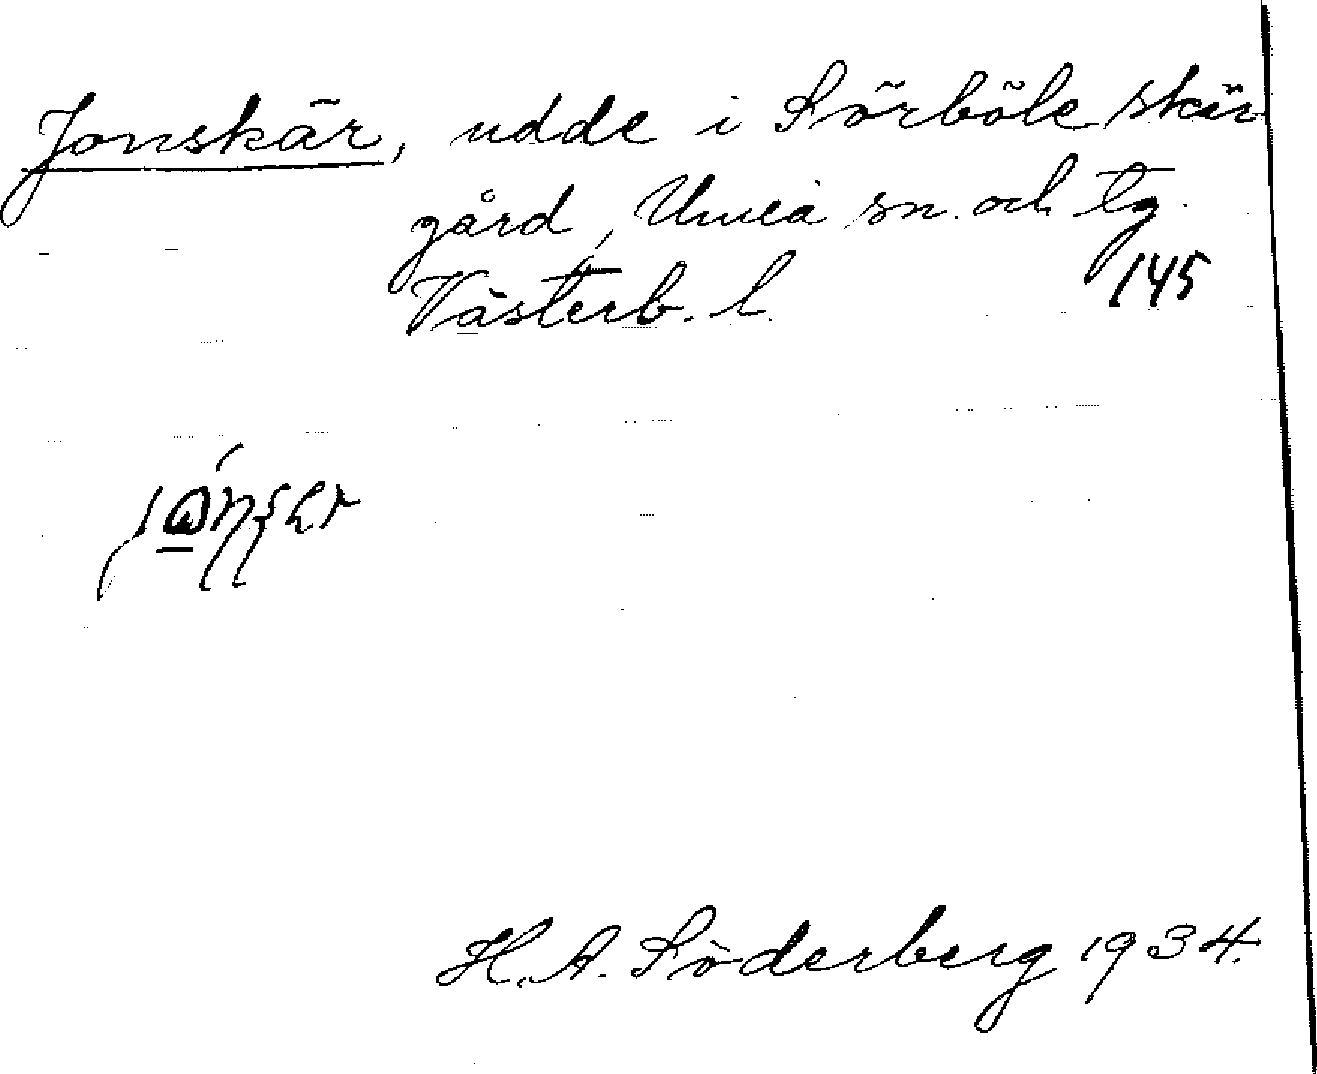 Jonskär, udde i Sörböle skär
gård, Umeå sn. och tg.
Västerb. l.
145
H. A. Söderberg 1934.